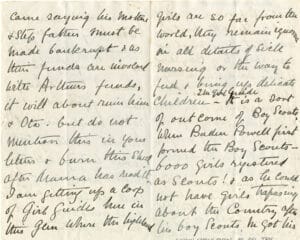 came saying his Mother
& Step father must be
made bankrupt & as
their funds are involved
with Arthurs funds,
it will about ruin him
& Oti - but do not
mention this in your
letters & burn this Sheet
after Mama has read it
I am getting up a Corp
of Girl Guides here in
this Glen where the
Girls are so far from the
world, they remain ignorant
on all details of Sick
nursing or the way to
feed & bring up delicate
Children - It is a sort
Girl Guides
of out come of Boy Scouts
When Baden Powell first
formed the Boy Scouts -
6000 Girls registered
as Scouts! & as he could
not have Girls traipsing
about the Country after
his boy Scouts he got his